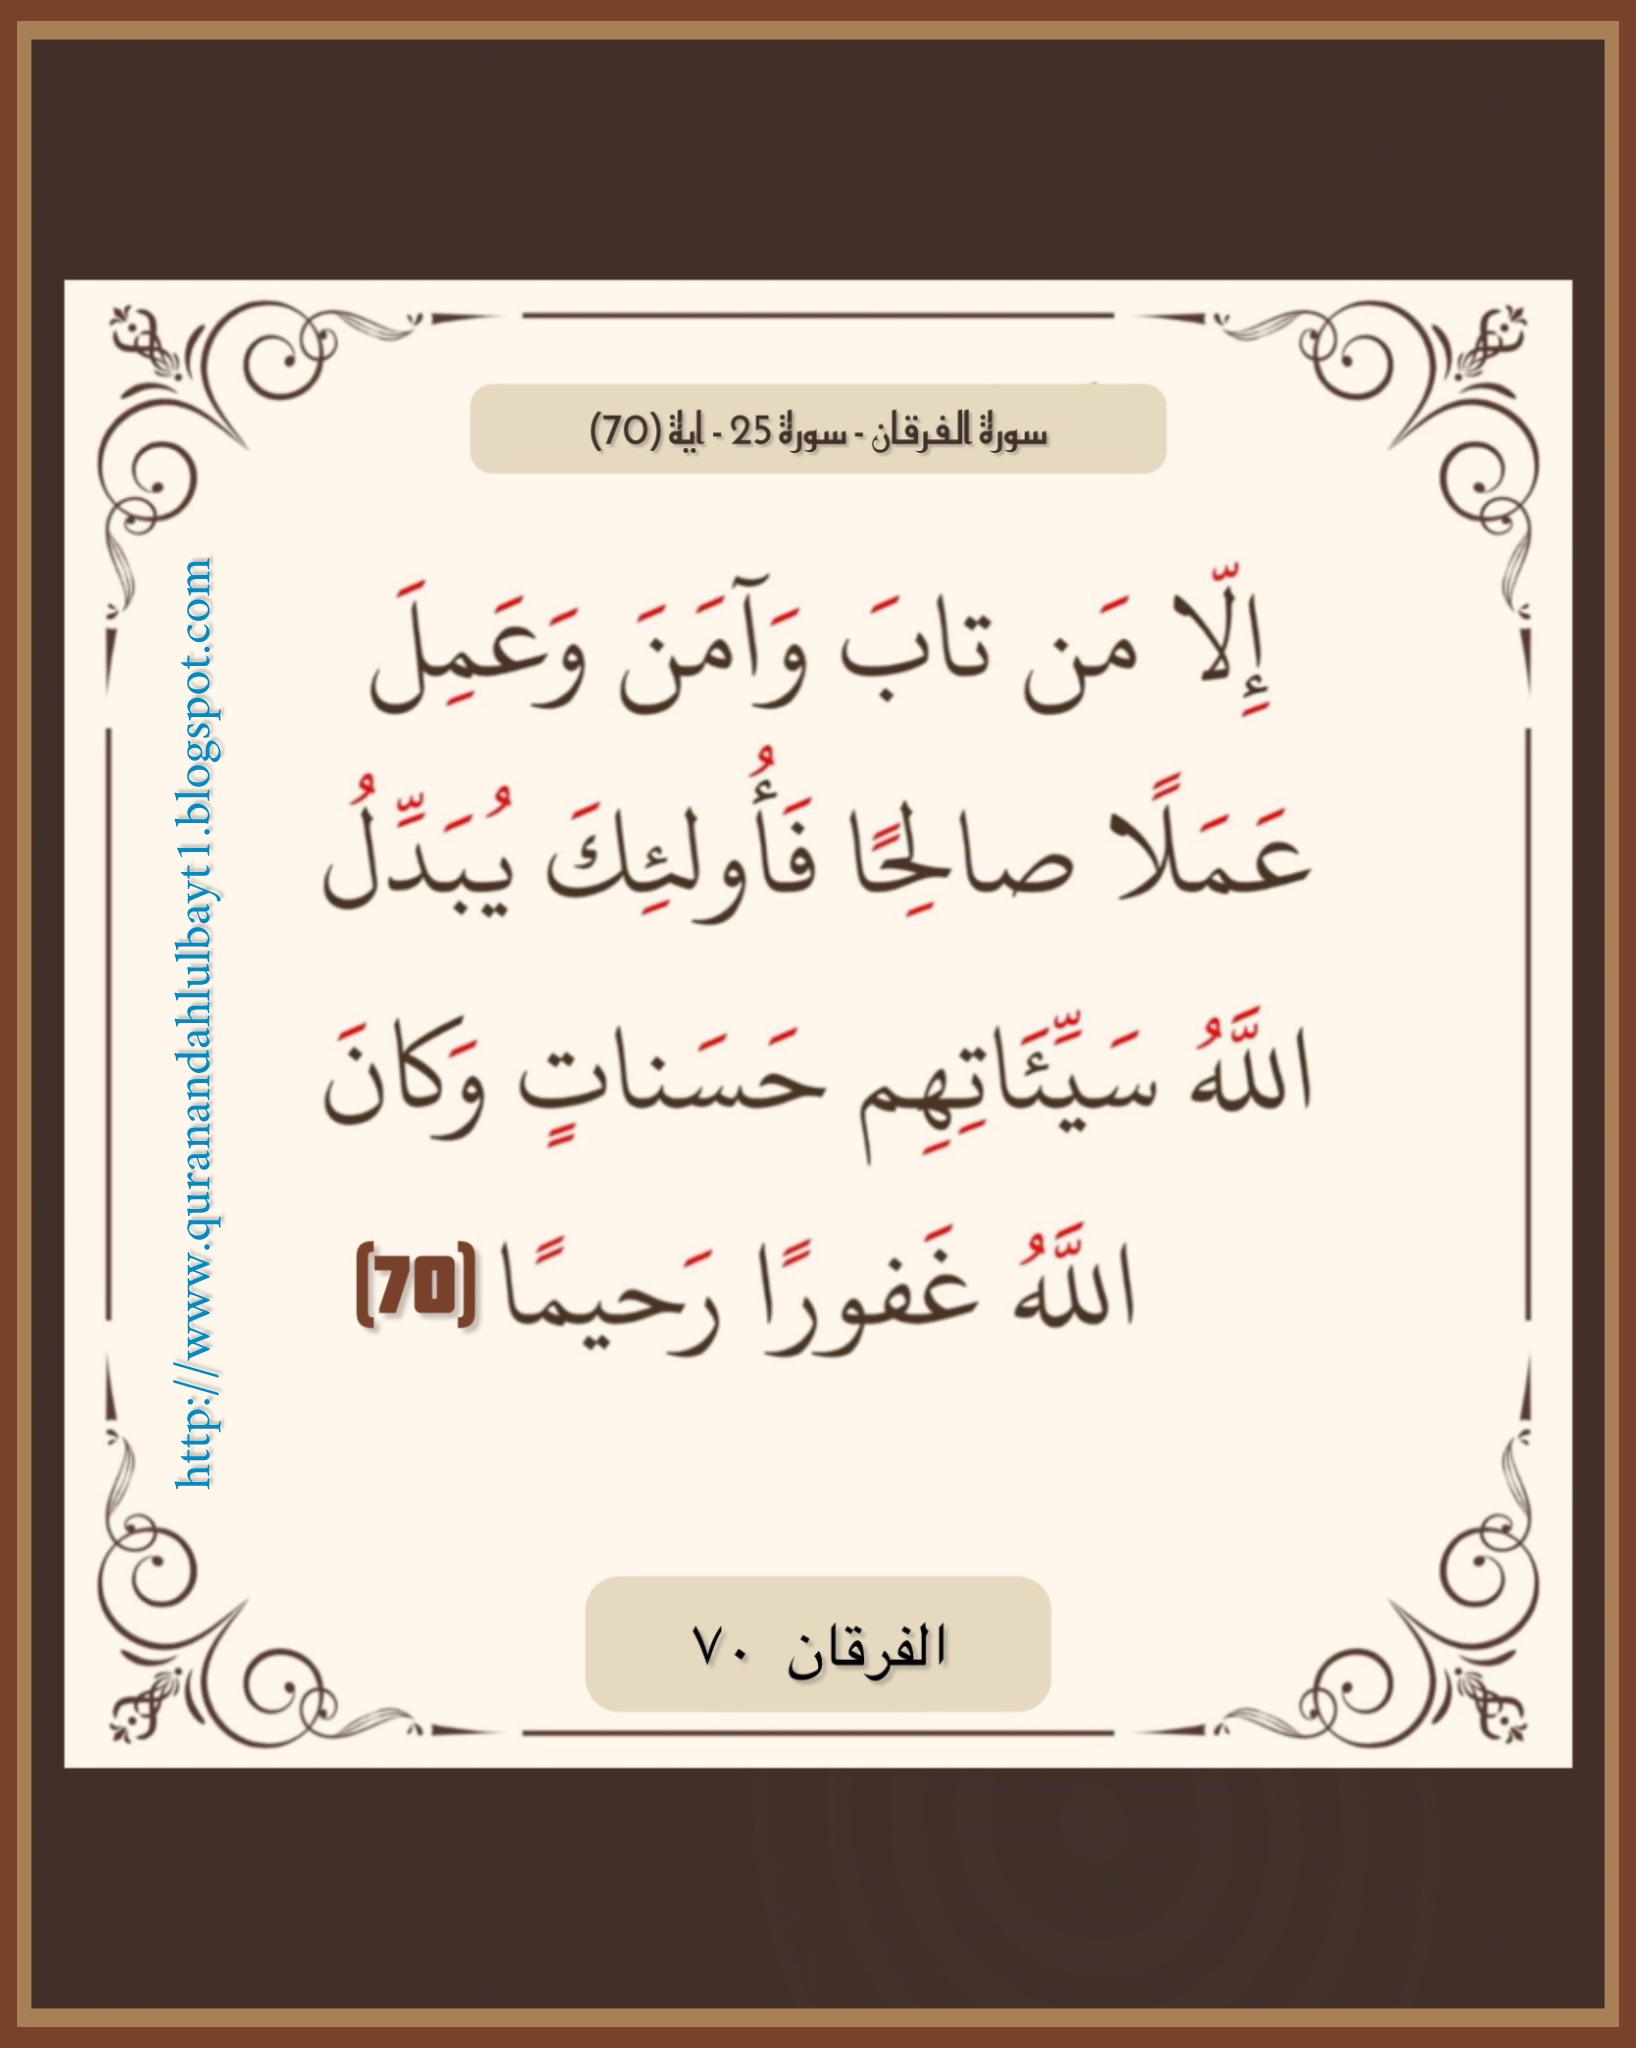 سورة الفرقان - سورة 25 - اية (70)
إِلّا مَن تابَ وَآمَنَ وَعَمِلَ
عَمَلًا صالِحًا فَأُولئِكَ يُبَدِّلُ
اللَّهُ سَيِّئَاتِهِم حَسَناتٍ وَكانَ
اللَّهُ غَفورًا رَحيمًا (70)
الفرقان ٧٠
http://www.quranandahlulbayt1.blogspot.com